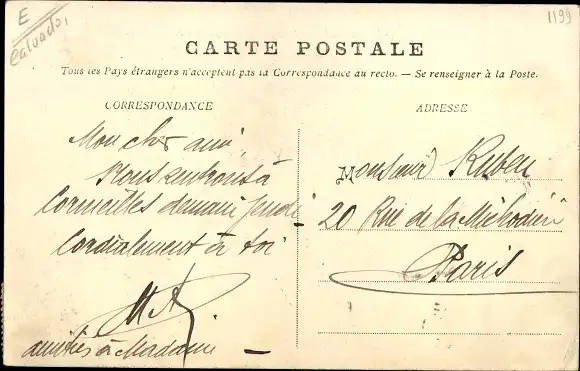 E
Calvados,
1199
CARTE POSTALE
Tous les Pays étrangers n'acceptent pas la Correspondance au recto. — Se renseigner à la Poste.
CORRESPONDANCE
Mon cher ami,
Nous rentrons à
Cormeilles demain jeudi
Cordialement à toi
amitiés à Madame —
ADRESSE
Monsieur Ruben
20 Rue de la
Paris